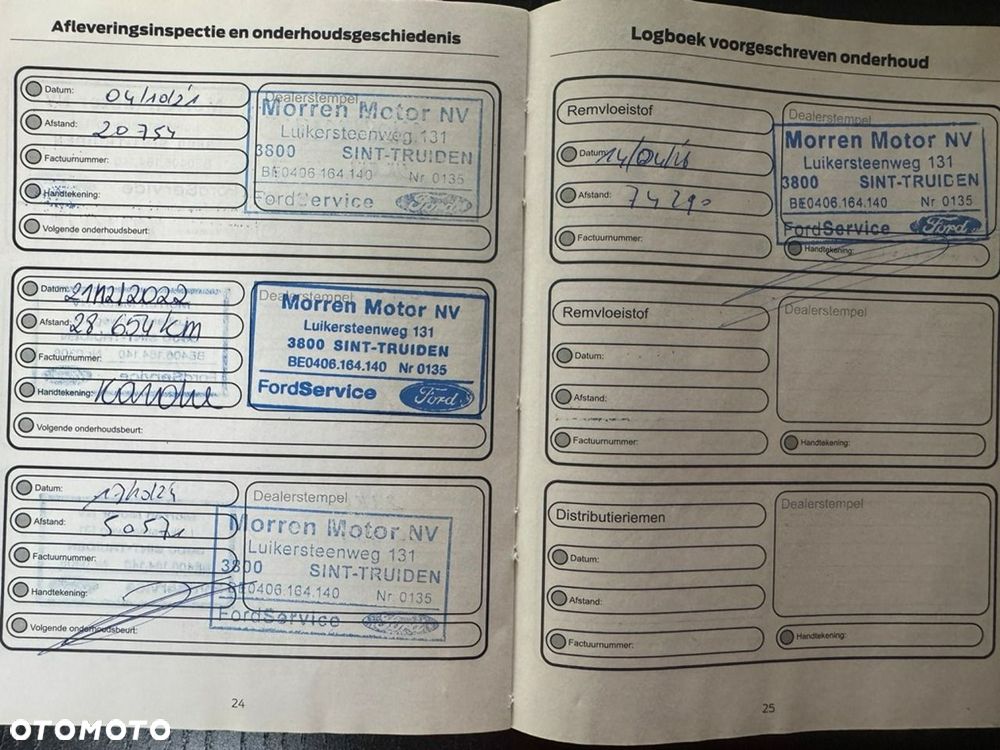 Afleveringsinspectie en onderhoudsgeschiedenis
Datum: 04/10/21
Afstand: 20754
Factuurnummer:
Handtekening:
Volgende onderhoudsbeurt:
Dealerstempel
Morren Motor NV
Luikersteenweg 131
3800 SINT-TRUIDEN
BE0406.164.140 Nr 0135
FordService Ford
Datum: 21/12/2022
Afstand: 28.654 KM
Factuurnummer:
Handtekening:
Volgende onderhoudsbeurt:
Dealerstempel
Morren Motor NV
Luikersteenweg 131
3800 SINT-TRUIDEN
BE0406.164.140 Nr 0135
FordService Ford
Datum: 17/10/24
Afstand: 50571
Factuurnummer:
Handtekening:
Volgende onderhoudsbeurt:
Dealerstempel
Morren Motor NV
Luikersteenweg 131
3800 SINT-TRUIDEN
BE0406.164.140 Nr 0135
FordService
24
Logboek voorgeschreven onderhoud
Remvloeistof
Datum:
Afstand: 74290
Factuurnummer:
Dealerstempel
Morren Motor NV
Luikersteenweg 131
3800 SINT-TRUIDEN
BE0406.164.140 Nr 0135
FordService Ford
Handtekening:
Remvloeistof
Datum:
Afstand:
Factuurnummer:
Dealerstempel
Handtekening:
Distributieriemen
Datum:
Afstand:
Factuurnummer:
Dealerstempel
Handtekening:
25
OTOMOTO